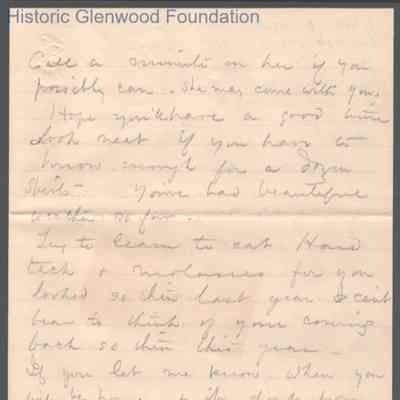 Historic Glenwood Foundation
Call a minute on her if you
possibly can. She may come with you.
Hope you'll have a good time
Look neat if you have to
borrow enough for a dozen
shirts – You've had beautiful
weather so far.
Try to learn to eat Hard
tack & molasses for you
looked so thin last year I can't
bear to think of your coming
back so thin this year –
If you let me know when you
be home